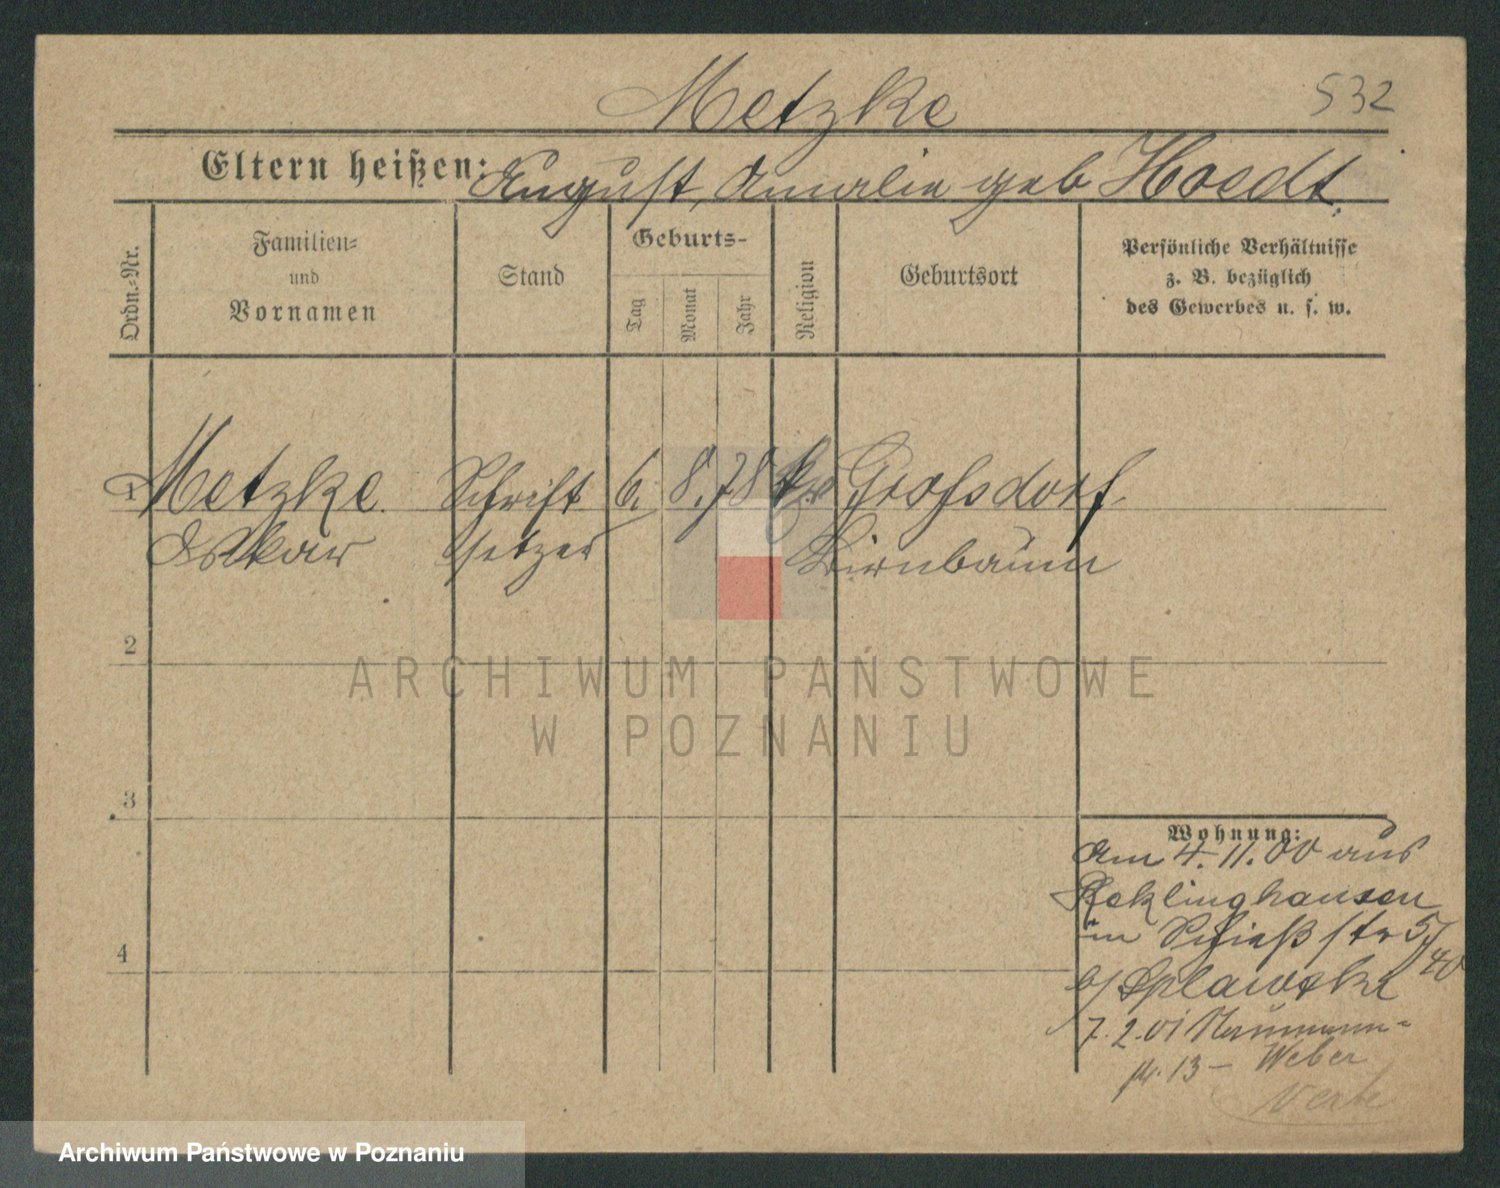 Metzke
532
Eltern heißen: August, Amalie geb Hoedt
Ordn.-Nr.
Familien-
und
Vornamen
Stand
Geburts-
Tag
Monat
Jahr
Religion
Geburtsort
Persönliche Verhältnisse
z. B. bezüglich
des Gewerbes u. s. w.
1 Metzke Schrift 6. 8. 78 Grossdorf
Oskar setzer Birnbaum
2
ARCHIWUM PAŃSTWOWE
W POZNANIU
3
Wohnung:
Am 4. 11. 00 aus
Reklinghausen
in Schieß str 5/40
4
b/ Splawski
7. 2. 01 Naumann-
str. 13 - Weber
Archiwum Państwowe w Poznaniu